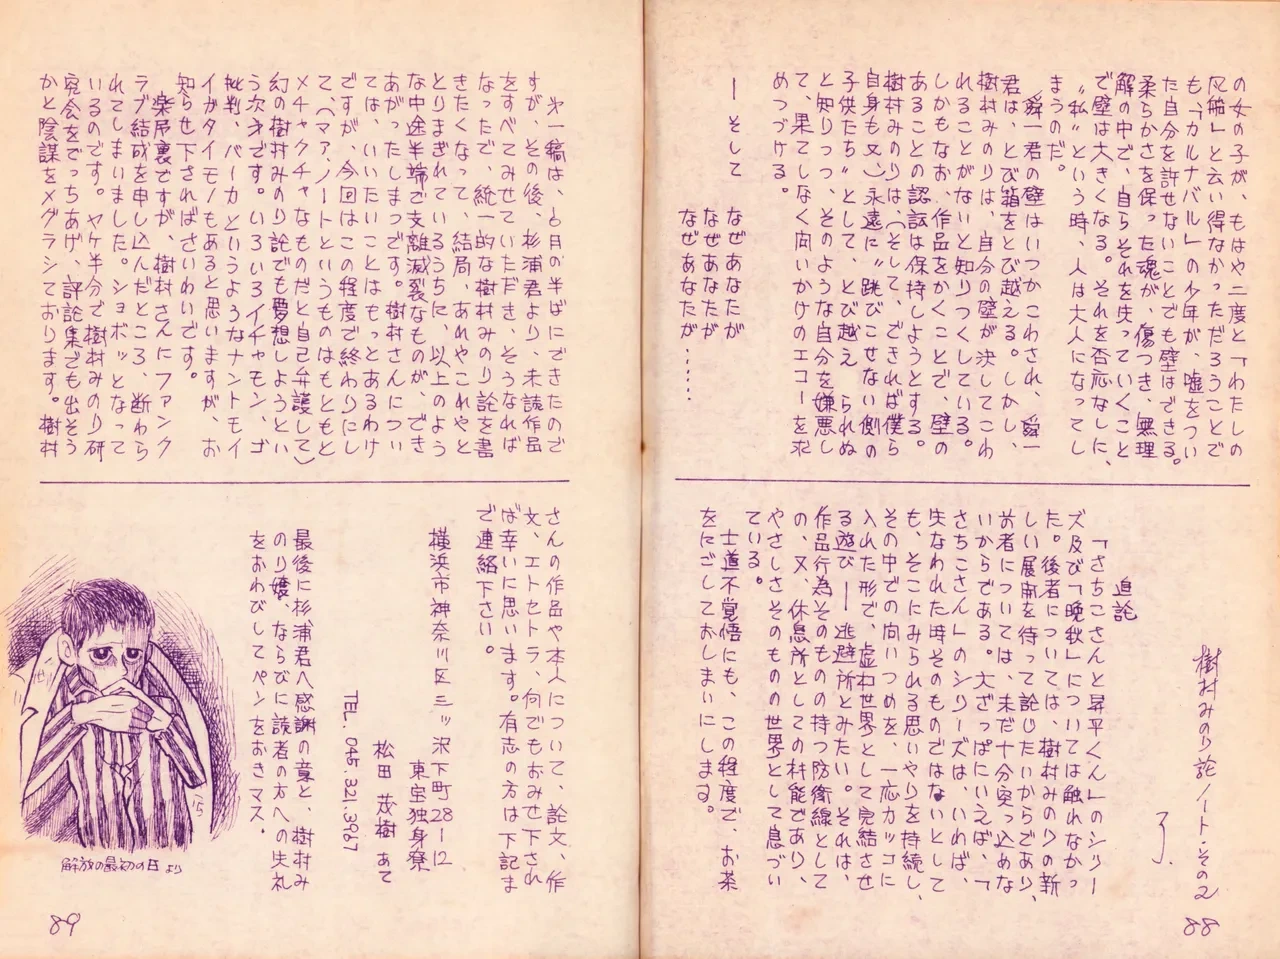 の女の子が、もはや二度と「わたしの
尻舵」と云い得なかっただろうことで
も、「カルナバル」の少年が、嘘をつい
た自分を許せないことでも壁はできる。
柔らかさを保った魂が、傷つき、無理
解の中で、自らそれを失っていくこと
で壁は大きくなる。それを否応なしに、
〝私〟という時、人は大人になってし
まうのだ。
舜一君の壁はいつかこわされ、舜一
君は、とび箱をとび越える。しかし、
樹村みのりは、自分の壁が決してこわ
れることがないと知りつくしている。
しかもなお、作品をかくことで、壁の
あることの認識は保持しようとする。
樹村みのりは(そして、できれば僕ら
自身も又)永遠に〝跳びこせない側の
子供たち〟として、とび越え られぬ
と知りつつ、そのような自分を嫌悪し
て、果てしなく向いかけのエコーを求
めつづける。
ー そして
なぜあなたが
なぜあなたが
なぜあなたが……
樹村みのり論ノート・その2
了.
追記
「さちこさんと昇平くん」のシリー
ズ及び「晩秋」については触れなかっ
た。後者については、樹村みのりの新
しい展開を待って論じたいからであり、
前者については、未だ十分突っ込めな
いからである。大ざっぱにいえば、「
さちこさん」のシリーズは、いわば、
失なわれた時そのものではないとして
も、そこにみられる思いやりを持続し、
その中での向いつめを、一応カッコに
入れた形で、虚わ世界として完結させ
る遊び ー 逃避所とみたい。それは、
作品行為そのものの持つ防衛線として
の、又、休息所としての材能であり、
やさしさそのものの世界として息づい
ている。
士道不覚悟にも、この程度で、お茶
をにごしておしまいにします。
88
第一稿は、6月の半ばにできたので
すが、その後、杉浦君より、未読作品
をすべてみせていただき、そうなれば
なったで、統一的な樹村みのり論を書
きたくなって、結局、あれやこれやと
とりまぎれているうちに、以上のよう
な中途半端で支離滅裂なものが、でき
あがったしまつです。樹村さんについ
ては、いいたいことはもっとあるわけ
ですが、今回はこの程度で終わりにし
て、(マア、ノートというものはもともと
メチャクチャなものだと自己弁護して)
幻の樹村みのり論でも夢想しようとい
う次才です。いろいろイチャモン、ゴ
批判、バーカというようなナントモイ
イガタイモノもあると思いますが、お
知らせ下さればさいわいです。
楽屋裏ですが、樹村さんにファンク
ラブ結成を申し込んだところ、断わら
れてしまいました。ショボッとなって
いるのです。ヤケ半分で樹村みのり研
究会をでっちあげ、評論集でも出そう
かと陰謀をメグラシております。樹村
さんの作品や本人について、論文、作
文、エトセトラ、何でもおみせ下され
ば幸いに思います。有志の方は下記ま
で連絡下さい。
横浜市神奈川区三ッ沢下町28ー12
東宝独身寮
松田 茂樹 あて
TEL. 045.321.3967
最後に杉浦君へ感謝の意と、樹村み
のり嬢、ならびに読者の方への失礼
をおわびしてペンをおきマス.
解放の最初の日 より
89